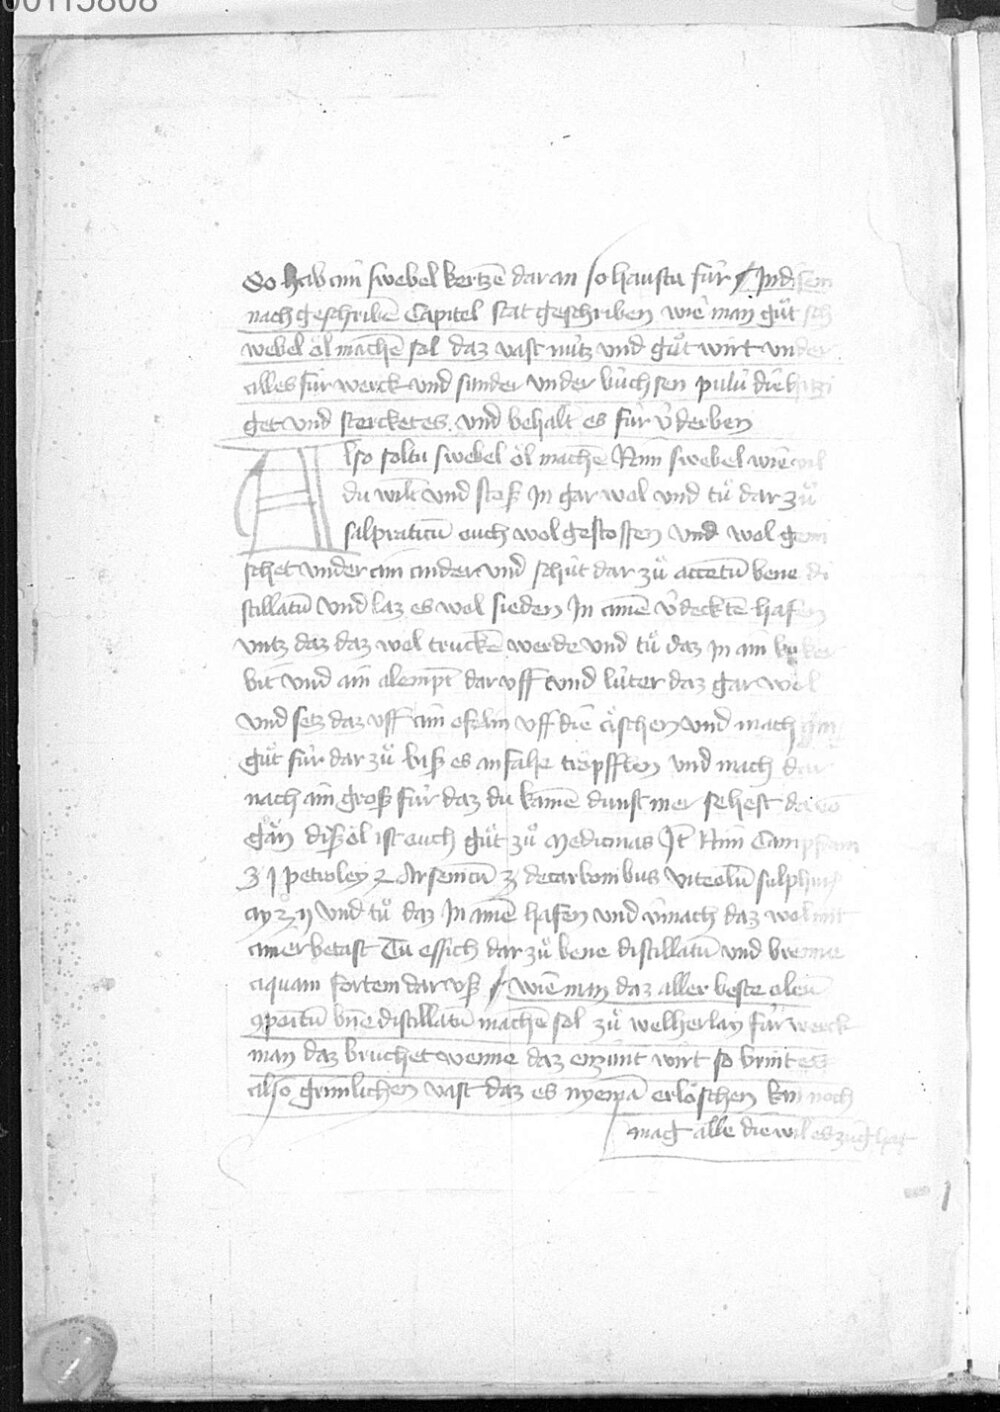 00115808
So hab ain swebel kertzē dar an so haustu für / Jn disem
nach geschribē Capitel stat geschriben wie man gůt sch
webel öl machē sol daz vast nütz und gůt wirt under
alles für werck und sunder under büchsen pulů die hitzi
get und stercketes und behalt es für v̉derben
Also soltu swebel öl machē Nim swebel wie vil
du wilt und stoß Jn gar wol und tů dar zů
salpraticū auch wol gestossen und wol gemi
schet under ain ander und schüt dar zů accetū bene di
stillatū und laz es wol sieden Jn ainē v̉decktē hafen
untz daz daz wol truckē werde und tů daz Jn ain
bit und ain alempt dar uff und luter daz gar wol
und setz daz uff ain öfelin uff die äschen und mach ain
gůt für dar zů biß es an fahe tröpfflen und mach dar
nach ain groß für daz du kainē dunst mer sehest da vō
gän diß öl ist auch gůt zů Medicinas Jt̄ Nim
petroley Arsenicū de carbonibus viteolū sulphur
und tů daz Jn ainē hafen und v̉mach daz wol mit
Tů essich dar zů bene distillatū und brenne
aquam fortem dar uß / wie man daz aller beste oleū
bn̄e distillatū machē sol zů welherlay für werck
man daz bruchet wenne daz enzünt wirt so brint es
also grimlichen vast daz es nyemā erlöschen kan noch
mag alle die wil es zug hat
1